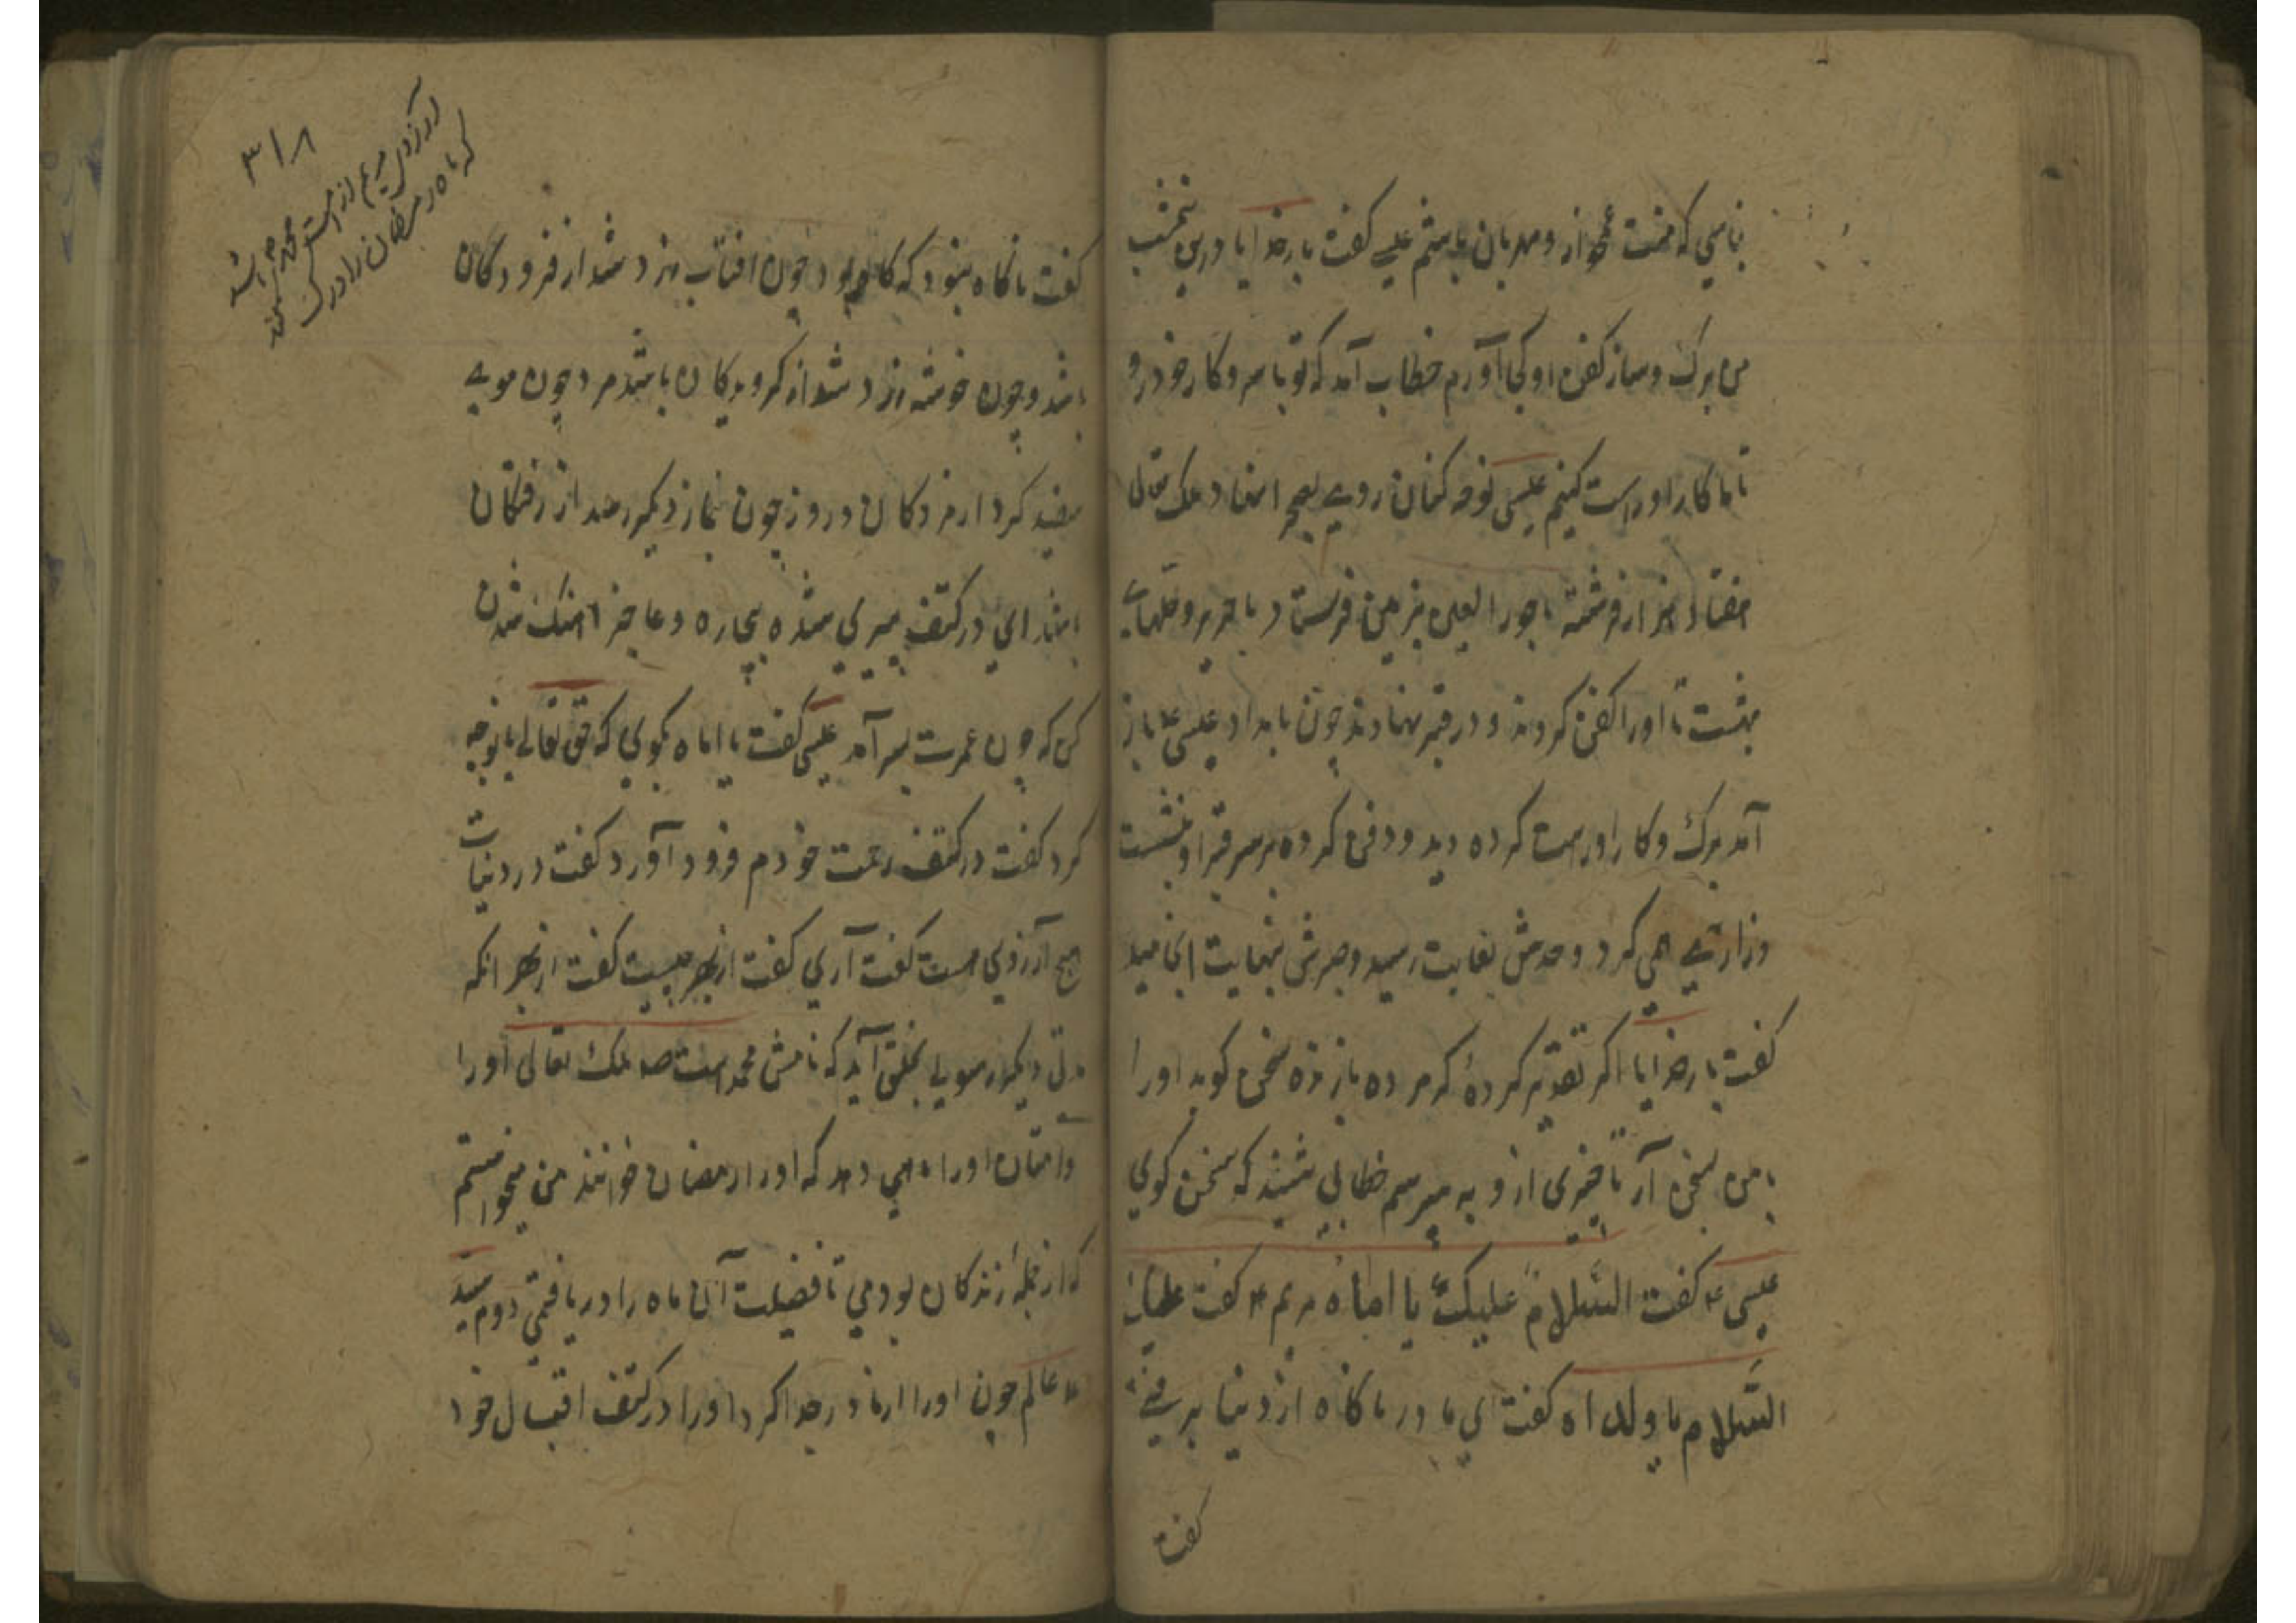 که منت غمخوار و مهربان باشم عیسی گفت بار خدایا درین شب
من برک و ساز کفن او کجا آورم خطاب آمد که تو با سر و کار خود رو
تا ما کار او راست کنیم عیسی نوحه کنان روی بصحرا نهاد ملک تعالی
هفتاد هزار فرشته با حور العین بزمین فرستاد با حریر و حلهای
بهشت تا او را کفن کردند و در قبر نهادند چون بامداد عیسی ع باز
آمد برک و کار او راست کرده دید و دفن کرده بر سر قبر او بنشست
و زاری می کرد و حدش بغایت رسید و صبرش بنهایت انجامید
کفت بار خدایا اکر تقدیر کردهٔ که مرده باز زنده سخن کوید او را
با من بسخن آر تا خبری ازو به پرسم خطابی شنید که سخن کوی
عیسی ع کفت السلام علیک یا اماه مریم ع کفت علیک
السلام یا ولداه کفت ای مادر ناکاه از دنیا برفتی
کفت
کفت ناکاه نبود که کاه بود چون افتاب زرد شد از فرودکان
باشد و چون خوشه زرد شد از کرویدکان باشد مرد چون موی
سفید کرد از مردکان و روز چون نماز دیکر رسد از رفتکان
باشد ای در کنف پیری شده بیچاره و عاجز اهنک شدن
کن که چون عمرت بسر آمد عیسی کفت یا اماه بکوی که حق تعالی با تو چه
کرد کفت در کنف رحمت خودم فرود آورد کفت در دنیات
هیچ آرزوی هست کفت آری کفت از بهر چیست کفت از بهر انکه
مدتی دیکر رسولی بخلق آید که نامش محمد است صه ملک تعالی او را
و امتان او را ماهی دهد که او را رمضان خوانند من میخواستم
که از جملهٔ زندکان بودمی تا فضیلت آن ماه را دریافتمی دوم سید
عالم چون او را از مادر جدا کرد او را در کنف اقبال خود
۳۱۸
آرزوی مریم از امت محمد ص باشد
که ماه رمضان را درک کند